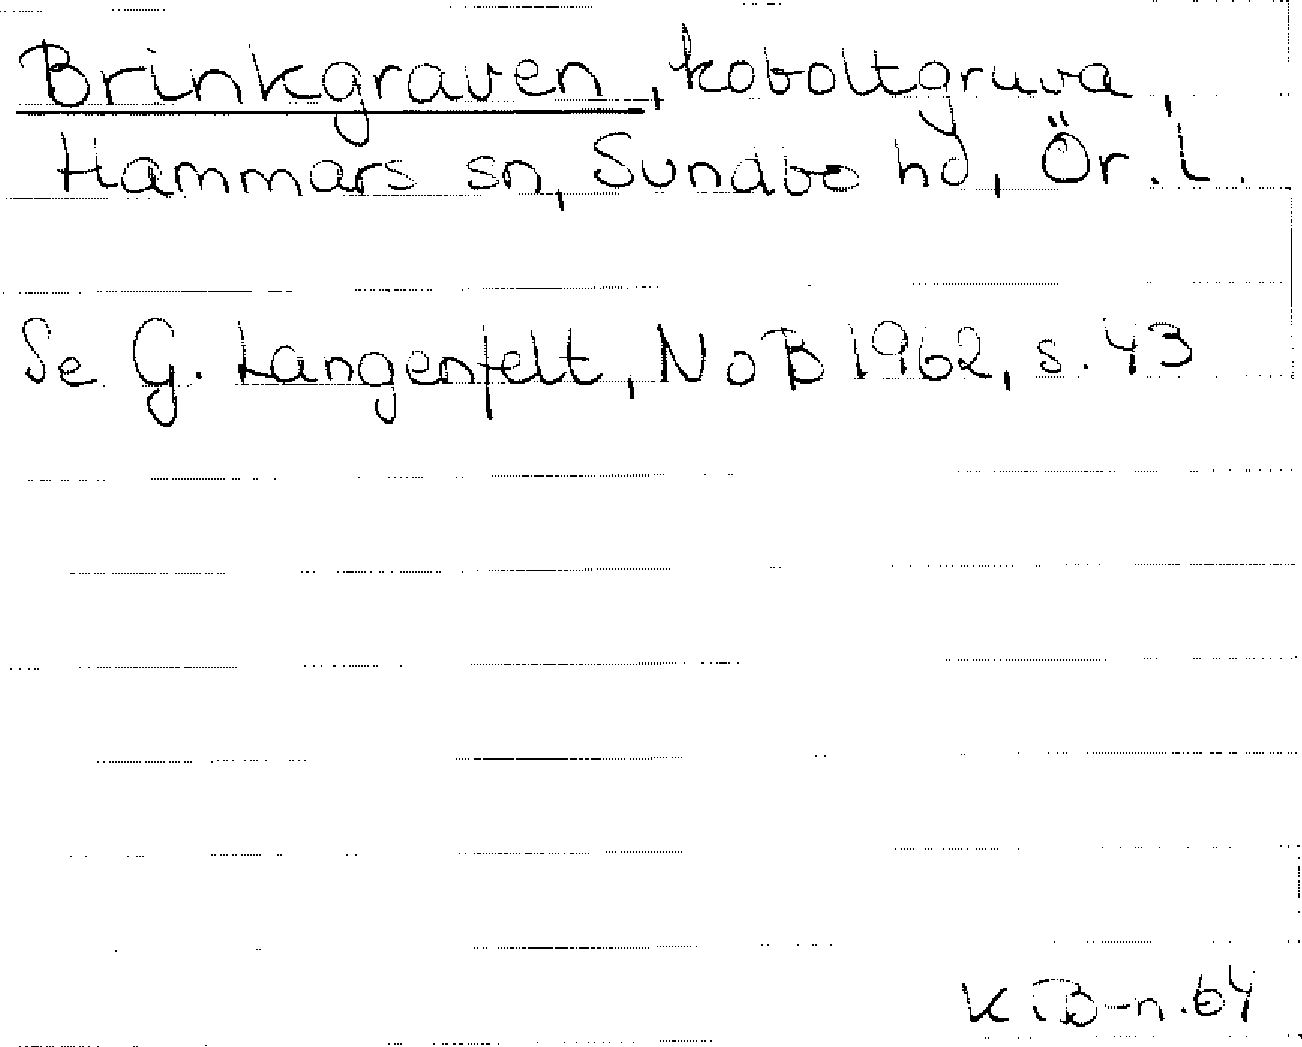 Brinkgraven, koboltgruva,
Hammars sn, Sundbo hd, Ör. l.
Se G. Langenfelt, NoB 1962, s. 43
K B-n. 64